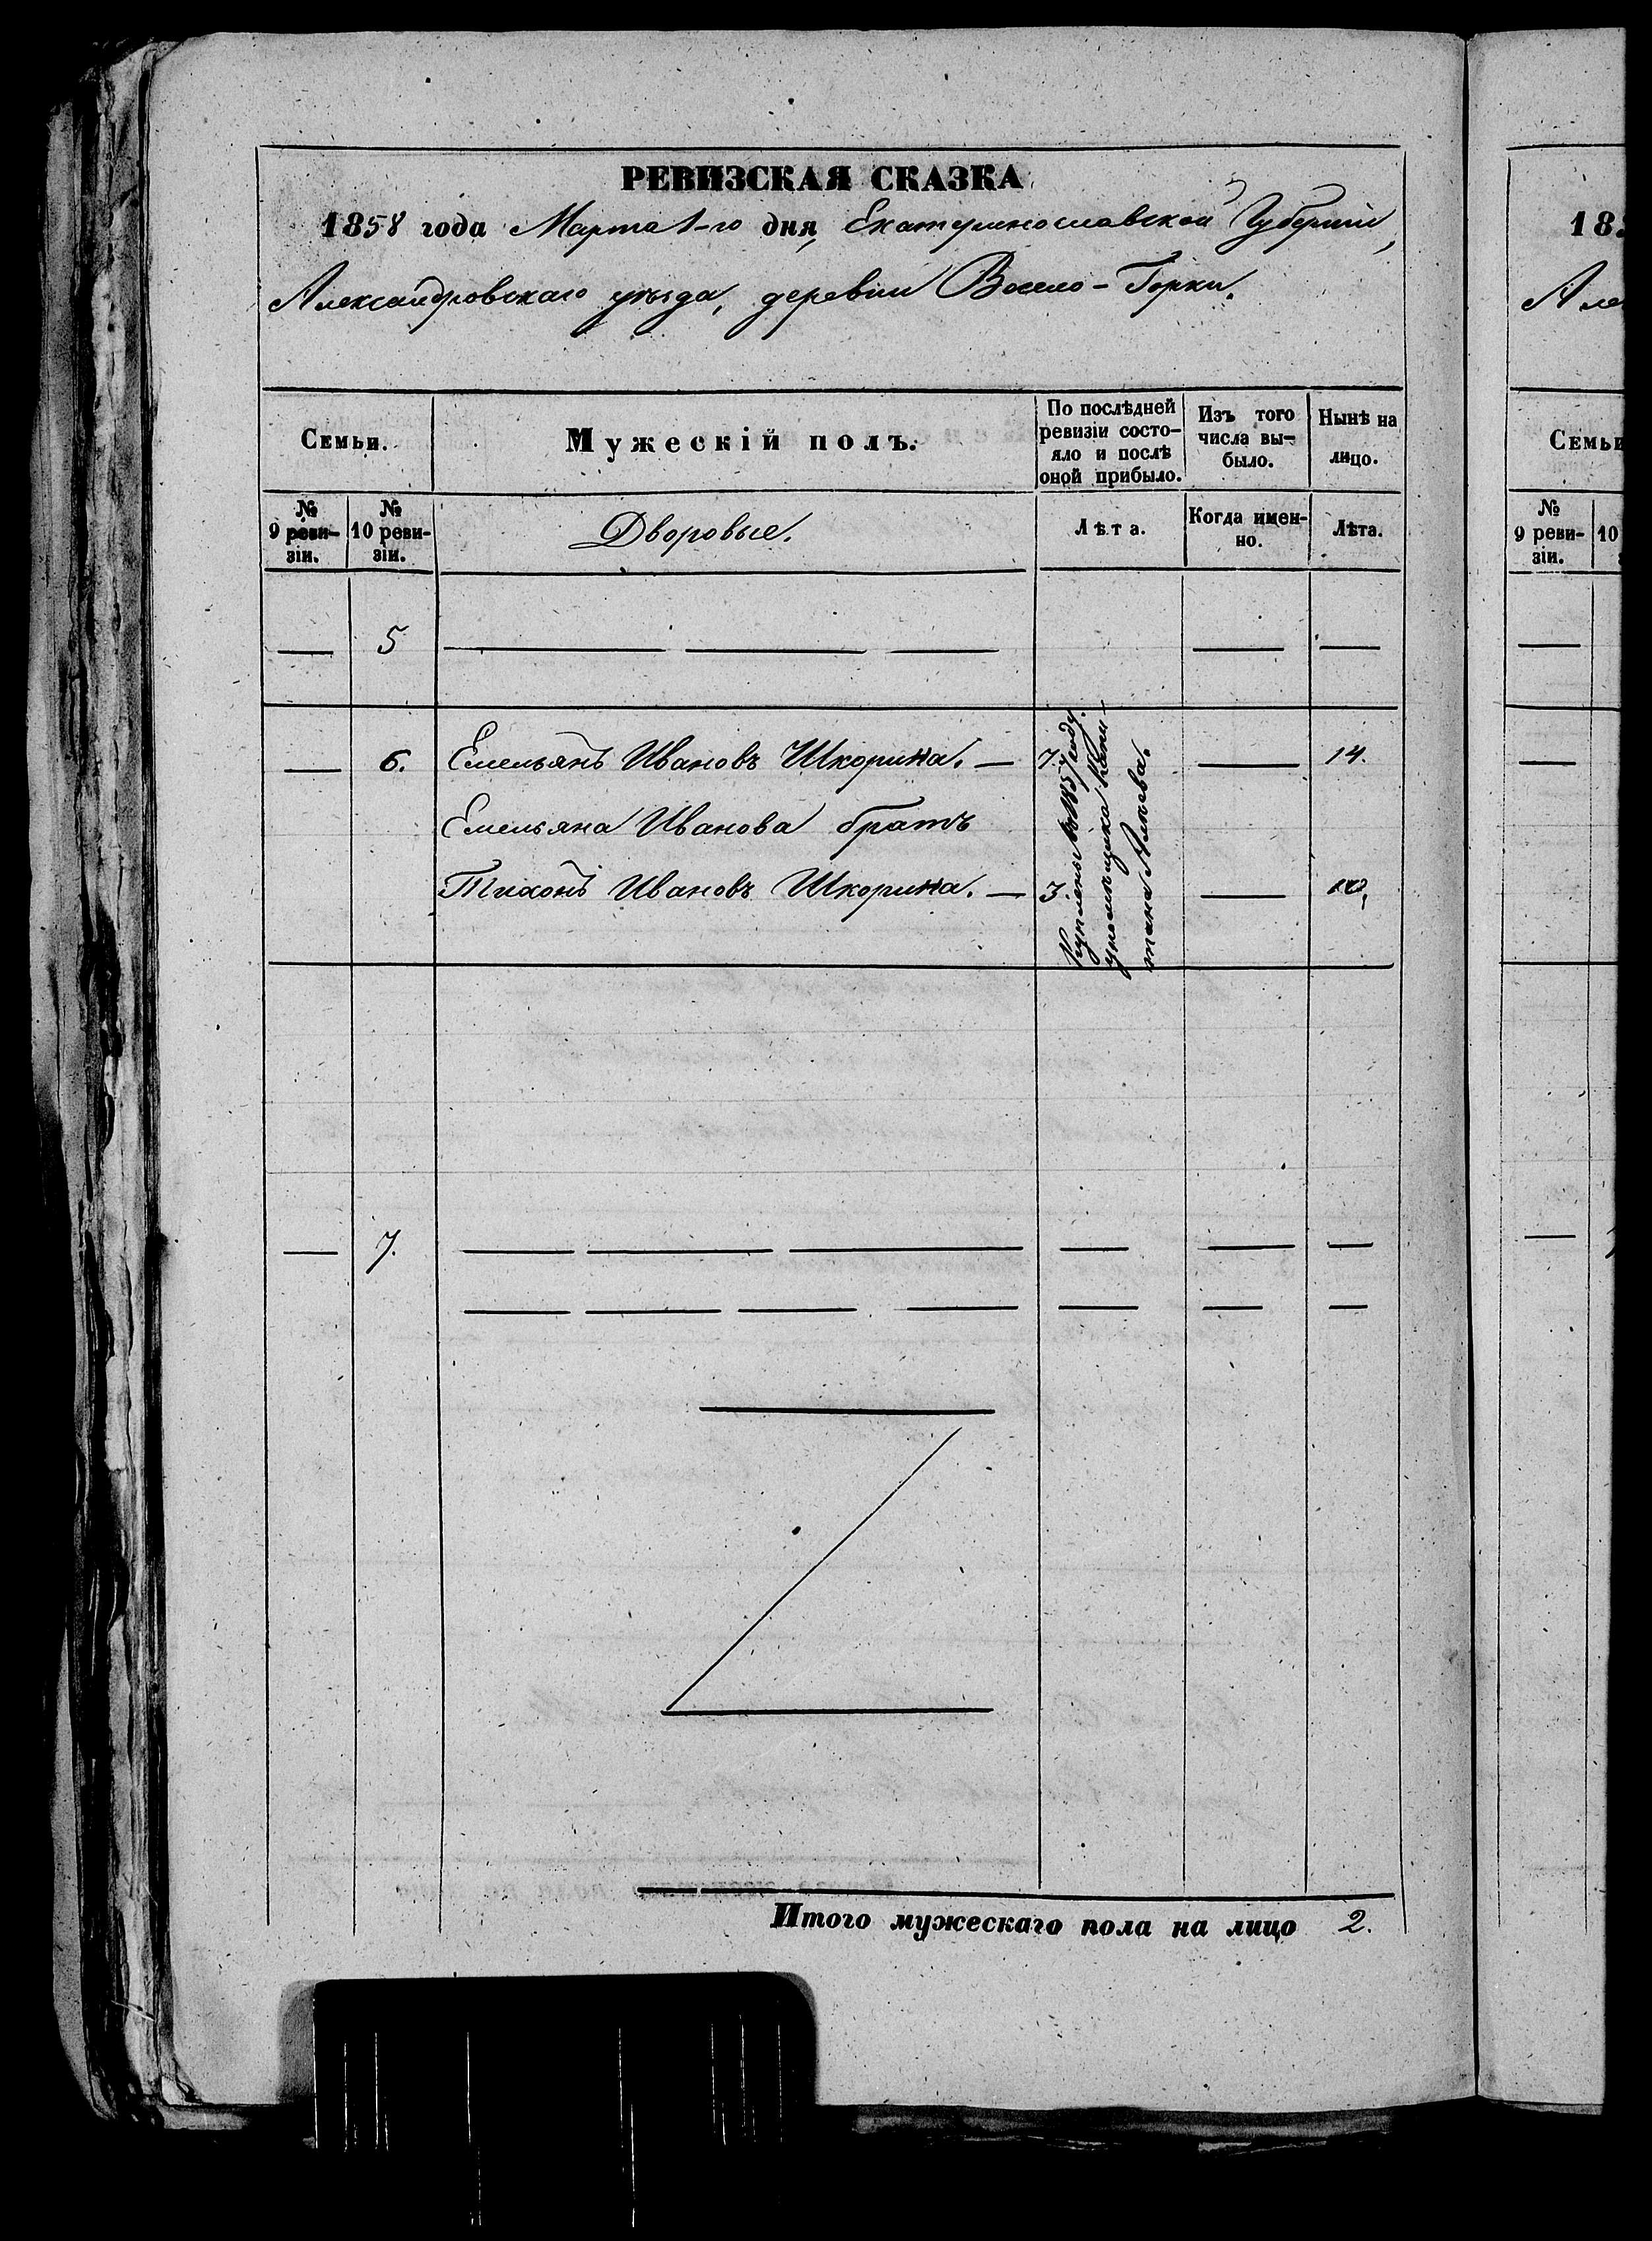 РЕВИЗСКАЯ СКАЗКА
1858 года Марта 1-го дня, Екатеринославской Губерніи,
Александровскаго уѣзда, деревни Горки.
Семьи.
Мужескій полъ.
По послѣдней ревизіи состо-
яло и послѣ оной прибыло.
Изъ того числа вы-
было.
Нынѣ на лицо.
№ 9 реви-
зіи.
№ 10 реви-
зіи.
Дворовые.
Лѣта.
Когда имен-
но.
Лѣта.
— 5 — — — — —
— 6. Емельянъ Ивановъ Шкорина. — 7. — 14.
Емельяна Иванова братъ
Тихонъ Ивановъ Шкорина. — 3. — 10.
Куплены въ 1857 году.
у помѣщика Капи-
тана
— 7. — — — — — —
— — — — — — —
Итого мужескаго пола на лицо 2.
183
Але
Семьи
№ 9 реви-
зіи.
10